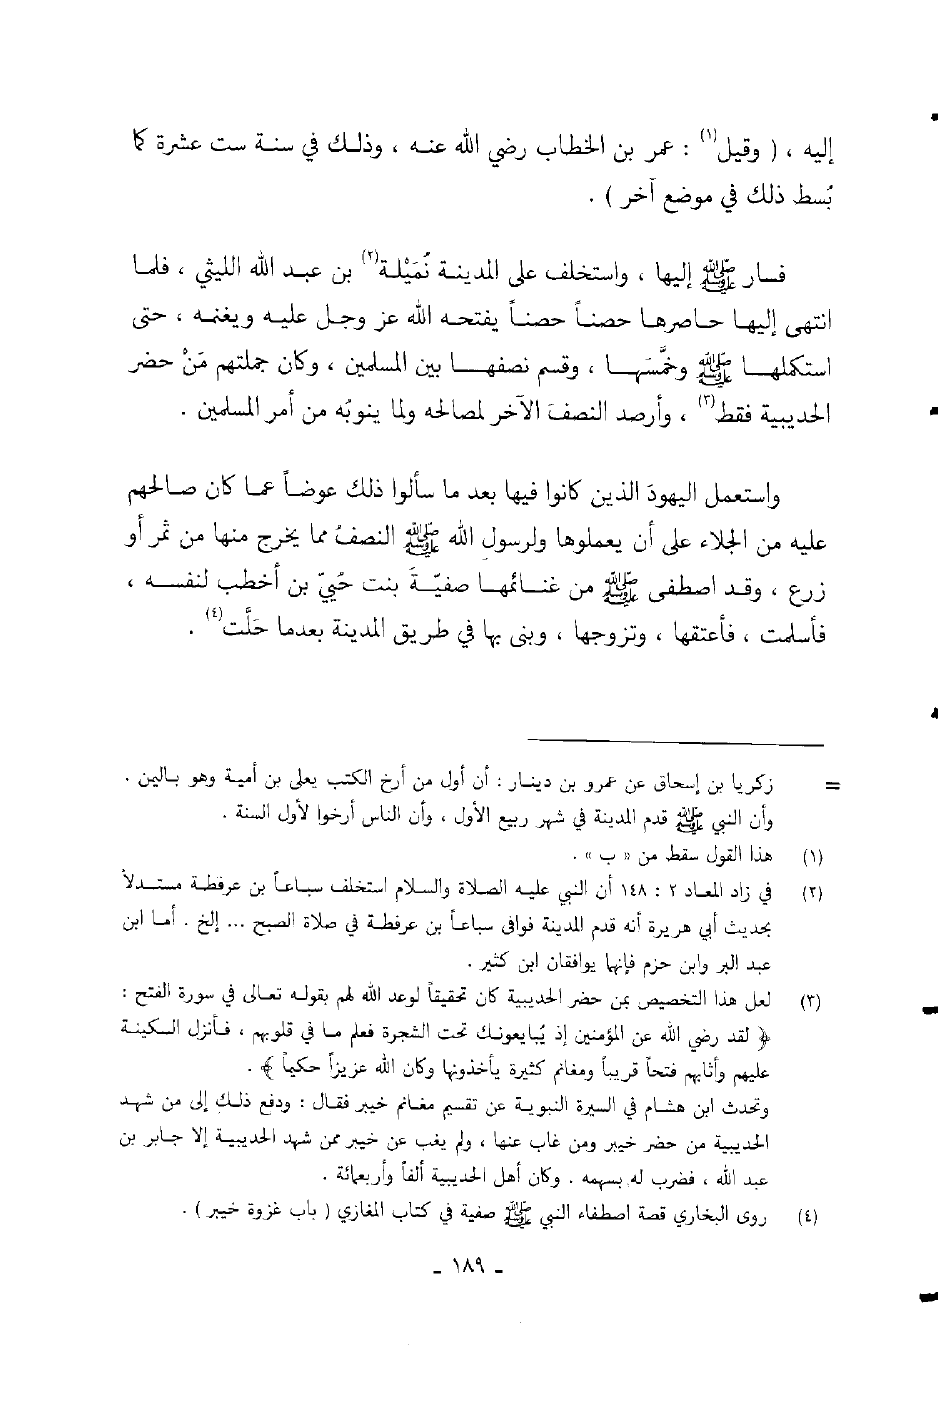 إليه ، ( وقيل(١) : عمر بن الخطاب رضي الله عنه ، وذلك في سنة ست عشرة كما
بُسط ذلك في موضع آخر ) .
فسار ﷺ إليها ، واستخلف على المدينة نُمَيْلة(٢) بن عبد الله الليثي ، فلما
انتهى إليها حاصرها حصناً حصناً يفتحه الله عز وجل عليه ويغنمه ، حتى
استكملها ﷺ وخمَّسَها ، وقسم نصفها بين المسلمين ، وكان جملتهم مَنْ حضر
الحديبية فقط(٣) ، وأرصد النصفَ الآخر لمصالحه ولما ينوبُه من أمر المسلمين .
واستعمل اليهودَ الذين كانوا فيها بعد ما سألوا ذلك عوضاً عما كان صالحهم
عليه من الجلاء على أن يعملوها ولرسول الله ﷺ النصفُ مما يخرج منها من ثمر أو
زرع ، وقد اصطفى ﷺ من غنائمها صفيّةَ بنت حُييّ بن أخطب لنفسه ،
فأسلمت ، فأعتقها ، وتزوجها ، وبنى بها في طريق المدينة بعدما حَلَّت(٤) .
= زكريا بن إسحاق عن عمرو بن دينار : أن أول من أرخ الكتب يعلى بن أمية وهو باليمن .
وأن النبي ﷺ قدم المدينة في شهر ربيع الأول ، وأن الناس أرخوا لأول السنة .
(١) هذا القول سقط من « ب » .
(٢) في زاد المعاد ٢ : ١٤٨ أن النبي عليه الصلاة والسلام استخلف سباعاً بن عرفطة مستدلاً
بحديث أبي هريرة أنه قدم المدينة فوافى سباعاً بن عرفطة في صلاة الصبح ... إلخ . أما ابن
عبد البر وابن حزم فإنها يوافقان ابن كثير .
(٣) لعل هذا التخصيص بمن حضر الحديبية كان تحقيقاً لوعد الله لهم بقوله تعالى في سورة الفتح :
﴿ لقد رضي الله عن المؤمنين إذ يُبايعونك تحت الشجرة فعلم ما في قلوبهم ، فأنزل السكينة
عليهم وأثابهم فتحاً قريباً ومغانم كثيرة يأخذونها وكان الله عزيزاً حكيماً ﴾ .
وتحدث ابن هشام في السيرة النبوية عن تقسيم مغانم خيبر فقال : ودفع ذلك إلى من شهد
الحديبية من حضر خيبر ومن غاب عنها ، ولم يغب عن خيبر ممن شهد الحديبية إلا جابر بن
عبد الله ، فضرب له بسهمه . وكان أهل الحديبية ألفاً وأربعمائة .
(٤) روى البخاري قصة اصطفاء النبي ﷺ صفية في كتاب المغازي ( باب غزوة خيبر ) .
ـ ١٨٩ ـ